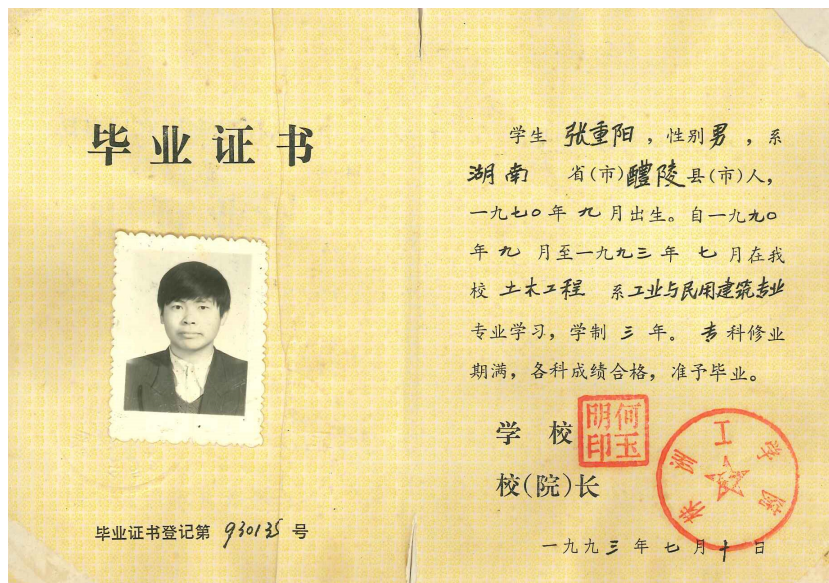 毕业证书
毕业证书登记第 930135 号
学生 张重阳,性别男,系
湖南 省(市)醴陵县(市)人,
一九七〇年 九月出生。自一九九〇
年九 月至一九九三年 七月在我
校 土木工程 系工业与民用建筑专业
专业学习,学制 三 年。专科修业
期满,各科成绩合格,准予毕业。
学 校
校(院)长
何玉明印
工学院
一九九三年七月十日